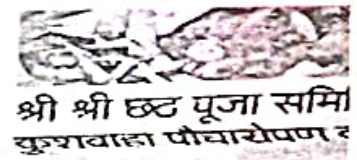 श्री श्री छट पूजा समि
कुशवाहा पौधारोपण